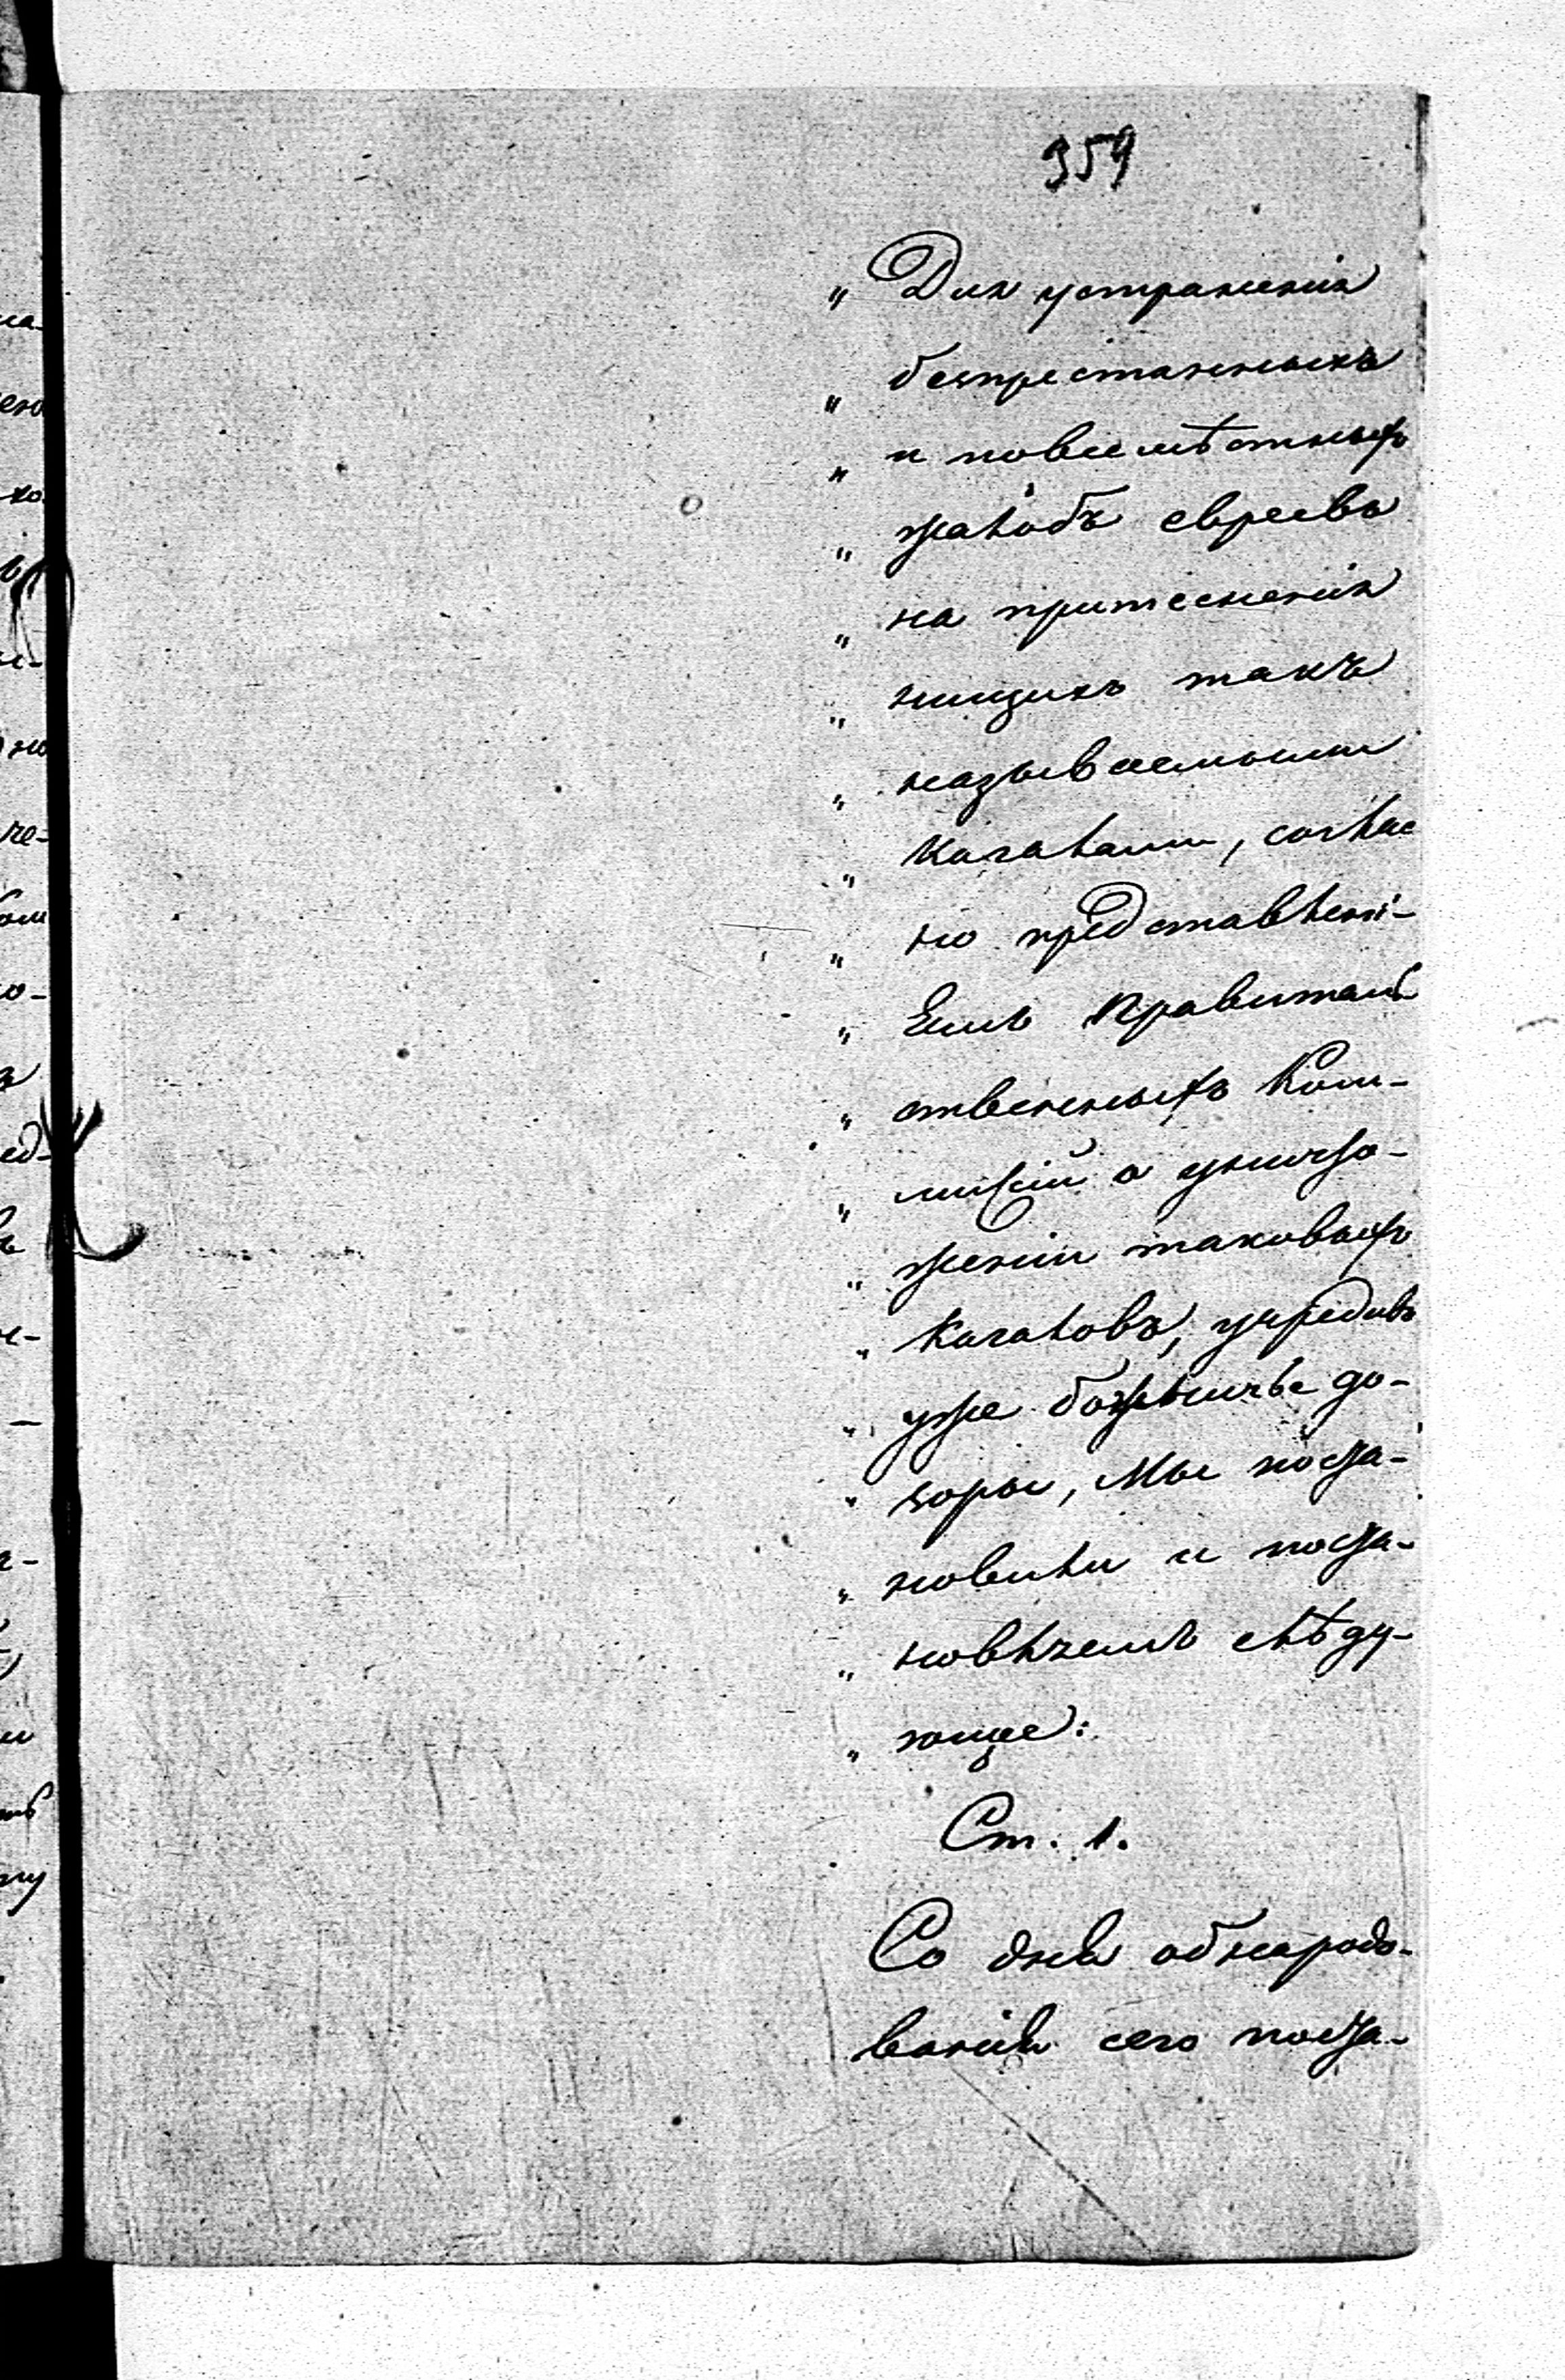 359
„ Для устраненія
„ безпрестанныхъ
„ и повсемѣстныхъ
„ жалобъ евреевъ
„ на притесненія
„ нищихъ такъ
„ называемыми
„ Кагалами, соглас
„ но представлені-
„ емъ Правитель
„ ственныхъ Ком-
„ мисій о уничто-
„ женіи таковыхъ
„ Кагаловъ, учредивъ
„ уже божничьи до-
„ зоры, Мы поста-
„ новили и поста-
„ новляемъ слѣду-
„ ющее:
Ст. 1.
Со дня обнародо-
ванія сего поста-